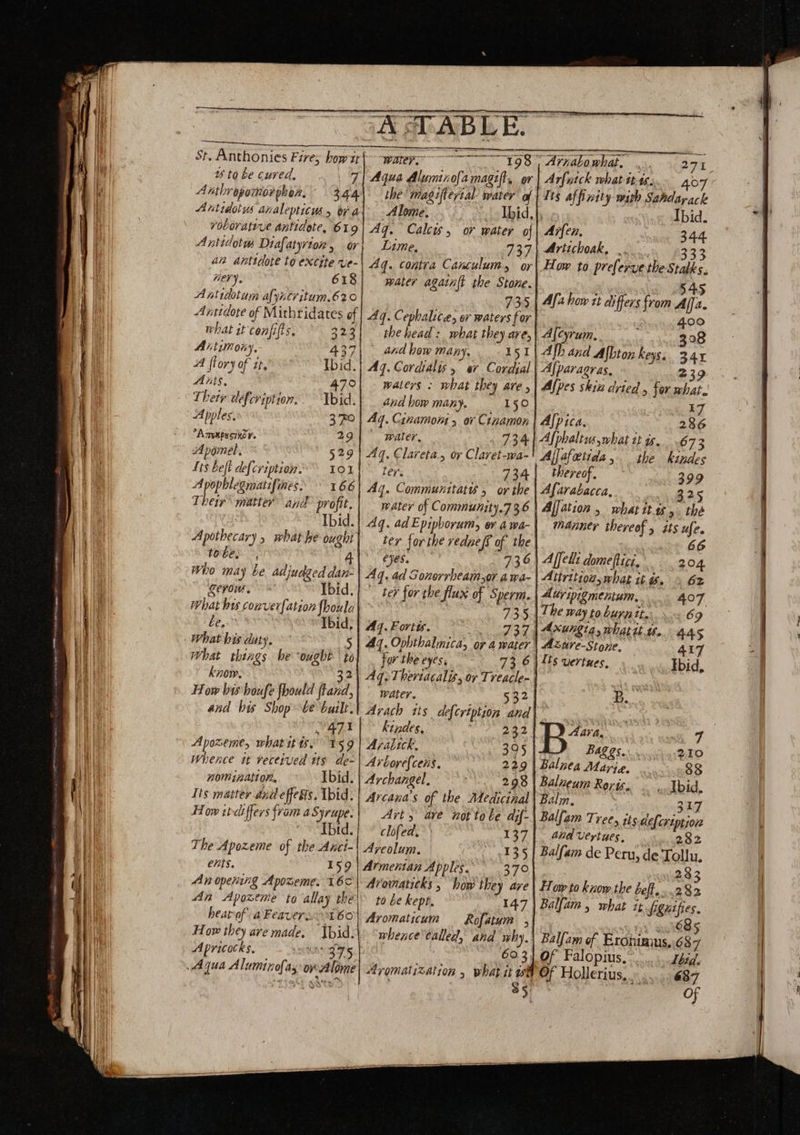 A TABLE.
St. Anthonies Fire, how it
is to be cured. 7
Anthropomorphon. 344
Antidotus analepticus, or a
roborative antidote, 619
Antidotus Diasatyrion, or
an antidote to excite ve-
nery. 618
Antidotum asyncritum. 620
Antidote of Mithridates of
what it consists. 323
Antimony. 437
A story of it. Ibid.
Ants. 470
Their description. Ibid.
Apples. 370
29
Apomel. 529
Its best description. 101
Apophlegmatismes. 166
Their matter and profit.
Ibid.
Apothecary, what he ought
to be. 4
Who may be adjudged dan-
gerous. Ibid.
What his conversation should
be. Ibid.
What his duty. 5
What things he ought to
know. 32
How his house should stand,
and his Shop be built.
471
Apozeme, what it is. 159
Whence it received its de-
nomination. Ibid.
Its matter and effects. Ibid.
How it differs from a Syrupe.
Ibid.
The Apozeme of the Anci-
ents. 159
An opening Apozeme. 160
An Apozeme to allay the
heat of a Feaver. 160
How they are made. Ibid.
Apricocks. 375
Aqua Aluminosa, or Alome
water. 198
Aqua Aluminosa magist. or
the magisterial water of
Alome. Ibid.
Aq. Calcis, or water of
Lime. 737
Aq. contra Canculum, or
water against the Stone.
735
Aq. Cephalicae, or waters for
the head: what they are,
and how many. 151
Aq. Cordialis, or Cordial
waters: what they are,
and how many. 150
Aq. Cinamoni, or Cinamon
water. 734
Aq. Clareta, or Claret-wa-
ter. 734
Aq. Communitatis, or the
water of Community. 736
Aq. ad Epiphorum, or a wa-
ter for the redness of the
eyes. 736
Aq. ad Gonorrheam, or a wa-
ter for the flux of Sperm.
735
Aq. Fortis. 737
Aq. Ophthalmica, or a water
for the eyes. 736
Aq. Theriacalis, or Treacle-
water. 532
Arach its description and
kindes. 232
Aralick. 395
Arborescens. 229
Archangel. 298
Arcana's of the Medicinal
Art, are not to be dis-
closed. 137
Areolum. 135
Armenian Apples. 370
Aromaticks, how they are
to be kept. 147
Aromaticum Rosatum,
whence called, and why.
603
Aromatization, what it is
85
Arnabo what. 271
Arsnick what it is. 407
Its affinity with Sandarack
Ibid.
Arsen. 344
Artichoak. 333
How to preserve the Stalks.
545
Asa how it differs from Assa.
400
Ascyrum. 308
Ash and Ashton keys. 341
Asparagras. 239
Aspes skin dried, for what.
17
Aspica. 286
Asphaltus, what it is. 673
Assafoetida, the kindes
thereof. 399
Asarabacca. 325
Assation, what it is, the
manner thereof, its use.
66
Asselli domestici. 204
Attrition, what it is. 62
Auripigmentum. 407
The way to burn it. 69
Axungia, what it is. 445
Azure-Stone. 417
Its vertues. Ibid.
B.
BAara. 7
Bagges. 210
Balnea Mariae. 88
Balneum Roris. Ibid.
Balm. 317
Balsam Tree, its description
and vertues. 282
Balsam de Peru, de Tollu.
283
How to know the best. 282
Balsam, what it signifies.
685
Balsam of Eronimus. 687
Of Falopius. Ibid.
Of Hollerius. 687
Of